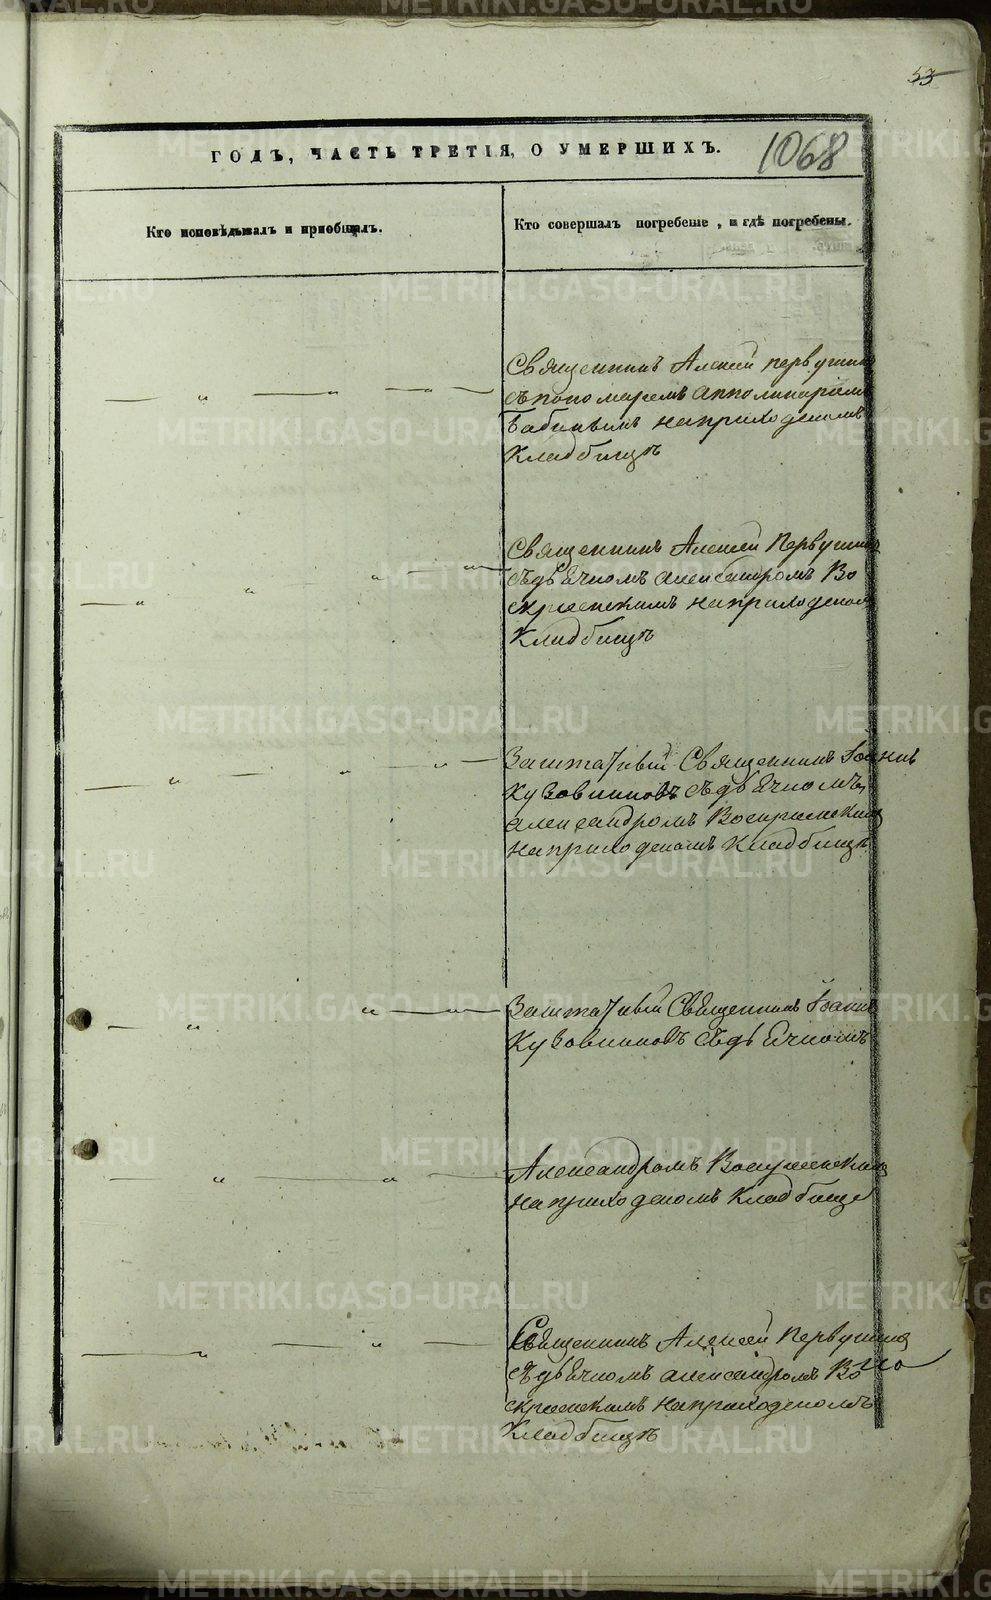 53
ГОДЪ, ЧАСТЬ ТРЕТІЯ, О УМЕРШИХЪ.
1068
Кто исповѣдывалъ и пріобщалъ.
Кто совершалъ погребеніе, и гдѣ погребены.
Священникъ Алексѣй Первушинъ
съ пономаремъ Апполинаріемъ
Бабинымъ на приходскомъ
Кладбищѣ
Священникъ Алексѣй Первушинъ
съ дьячкомъ Александромъ Во
скресенскимъ на приходском
Кладбищѣ
Заштатный Священникъ Іоаннъ
Кузовниковъ съ дьячкомъ
Александромъ Воскресенскимъ
на приходскомъ Кладбищѣ
Заштатный Священникъ Іоаннъ
Кузовниковъ съ дьячкомъ
Александромъ Воскресенскимъ
на приходскомъ Кладбище
Священникъ Алексѣй Первушинъ
съ дьячкомъ Александромъ Во
скресенскимъ на приходскомъ
Кладбищѣ
METRIKI.GASO-URAL.RU